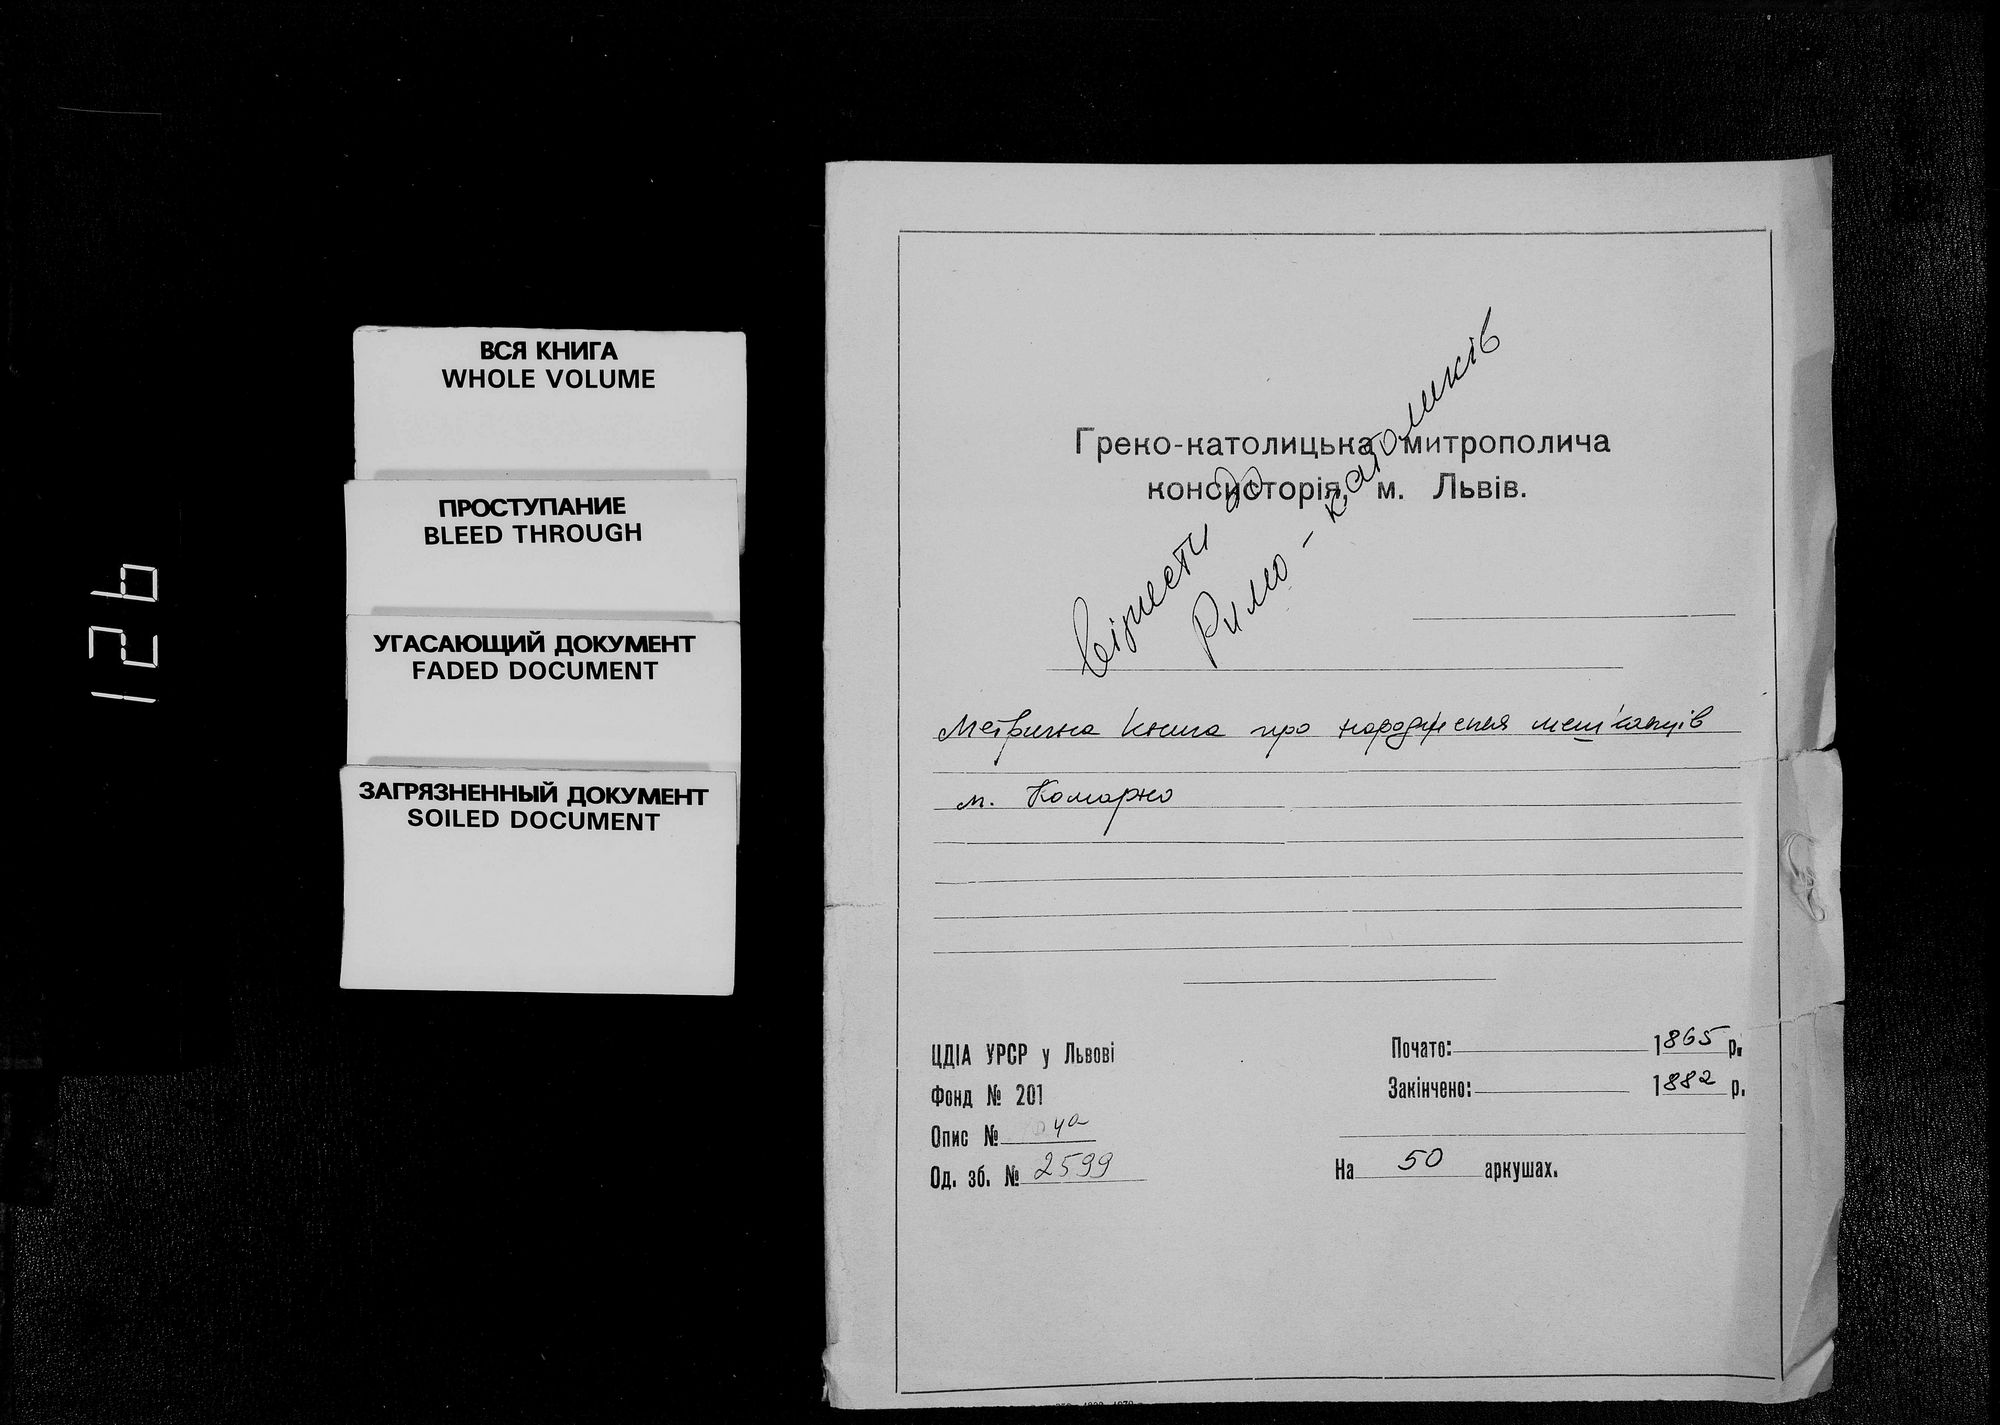 126
ВСЯ КНИГА
WHOLE VOLUME
ПРОСТУПАНИЕ
BLEED THROUGH
УГАСАЮЩИЙ ДОКУМЕНТ
FADED DOCUMENT
ЗАГРЯЗНЕННЫЙ ДОКУМЕНТ
SOILED DOCUMENT
Греко-католицька митрополича
консисторія, м. Львів.
віднести до
Римо-католиків
Метрична книга про народження мешканців
м. Комарно
ЦДІА УРСР у Львові
Фонд № 201
Опис № 4а
Од. зб. № 2599
Почато: 1865 р.
Закінчено: 1882 р.
На 50 аркушах.